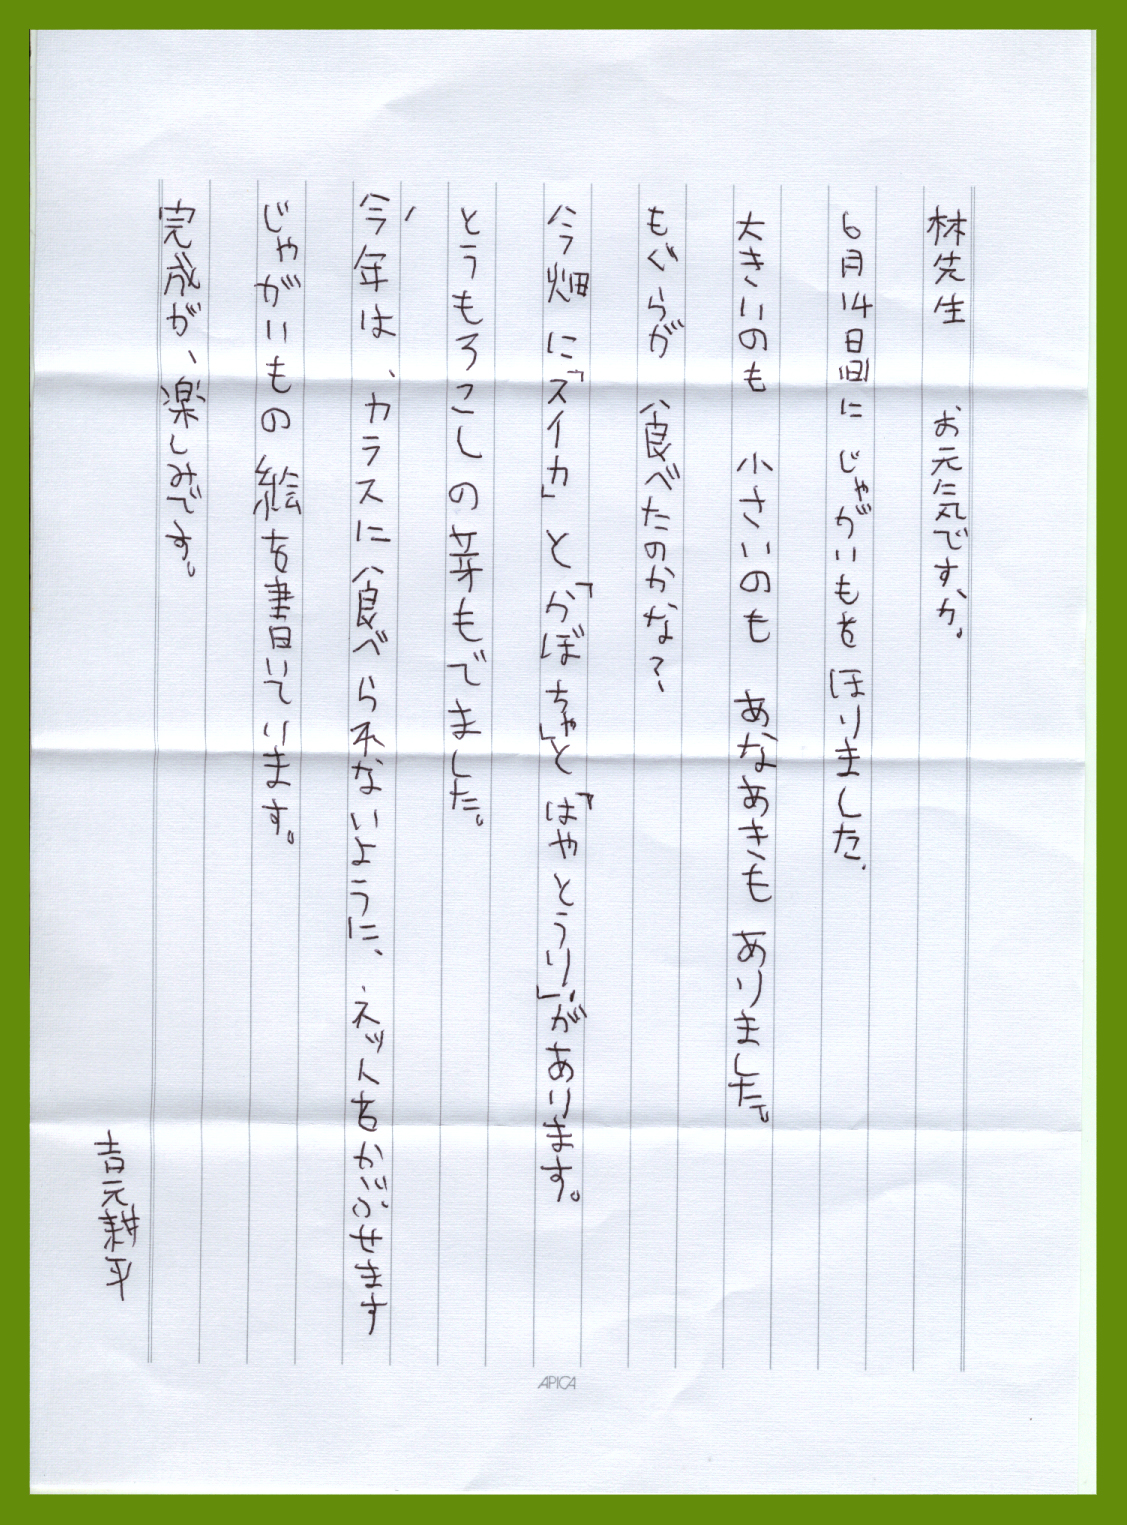 林先生 お元気ですか。
6月14日㊐に じゃがいもを ほりました。
大きいのも 小さいのも あなあきも ありました。
もぐらが 食べたのかな?
今畑に「スイカ」と「かぼちゃ」と「はやとうり」があります。
とうもろこしの芽もでました。
今年は、カラスに食べられないように、ネットをかぶせます
じゃがいもの絵を書いています。
完成が、楽しみです。
吉元耕平
APICA